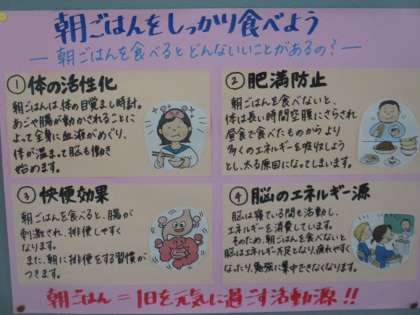 朝ごはんをしっかり食べよう
― 朝ごはんを食べるとどんないいことがあるの? ―
① 体の活性化
朝ごはんは体の目覚まし時計。
あごや腸が動かされることに
よって全身に血液がめぐり、
体が温まって脳も働き
始めます。
② 肥満防止
朝ごはんを食べないと、
体は長い時間空腹にさらされ
昼食で食べたものからより
多くのエネルギーを吸収しよう
とし、太る原因になってしまいます。
③ 快便効果
朝ごはんを食べると、腸が
刺激され、排便しやすく
なります。
また、朝に排便をする習慣が
つきます。
④ 脳のエネルギー源
脳は寝ている間も活動し、
エネルギーを消費しています。
そのため、朝ごはんを食べないと
脳はエネルギー不足となり、疲れやすく
なったり、勉強に集中できなくなります。
朝ごはん = 1日を元気に過ごす活動源!!